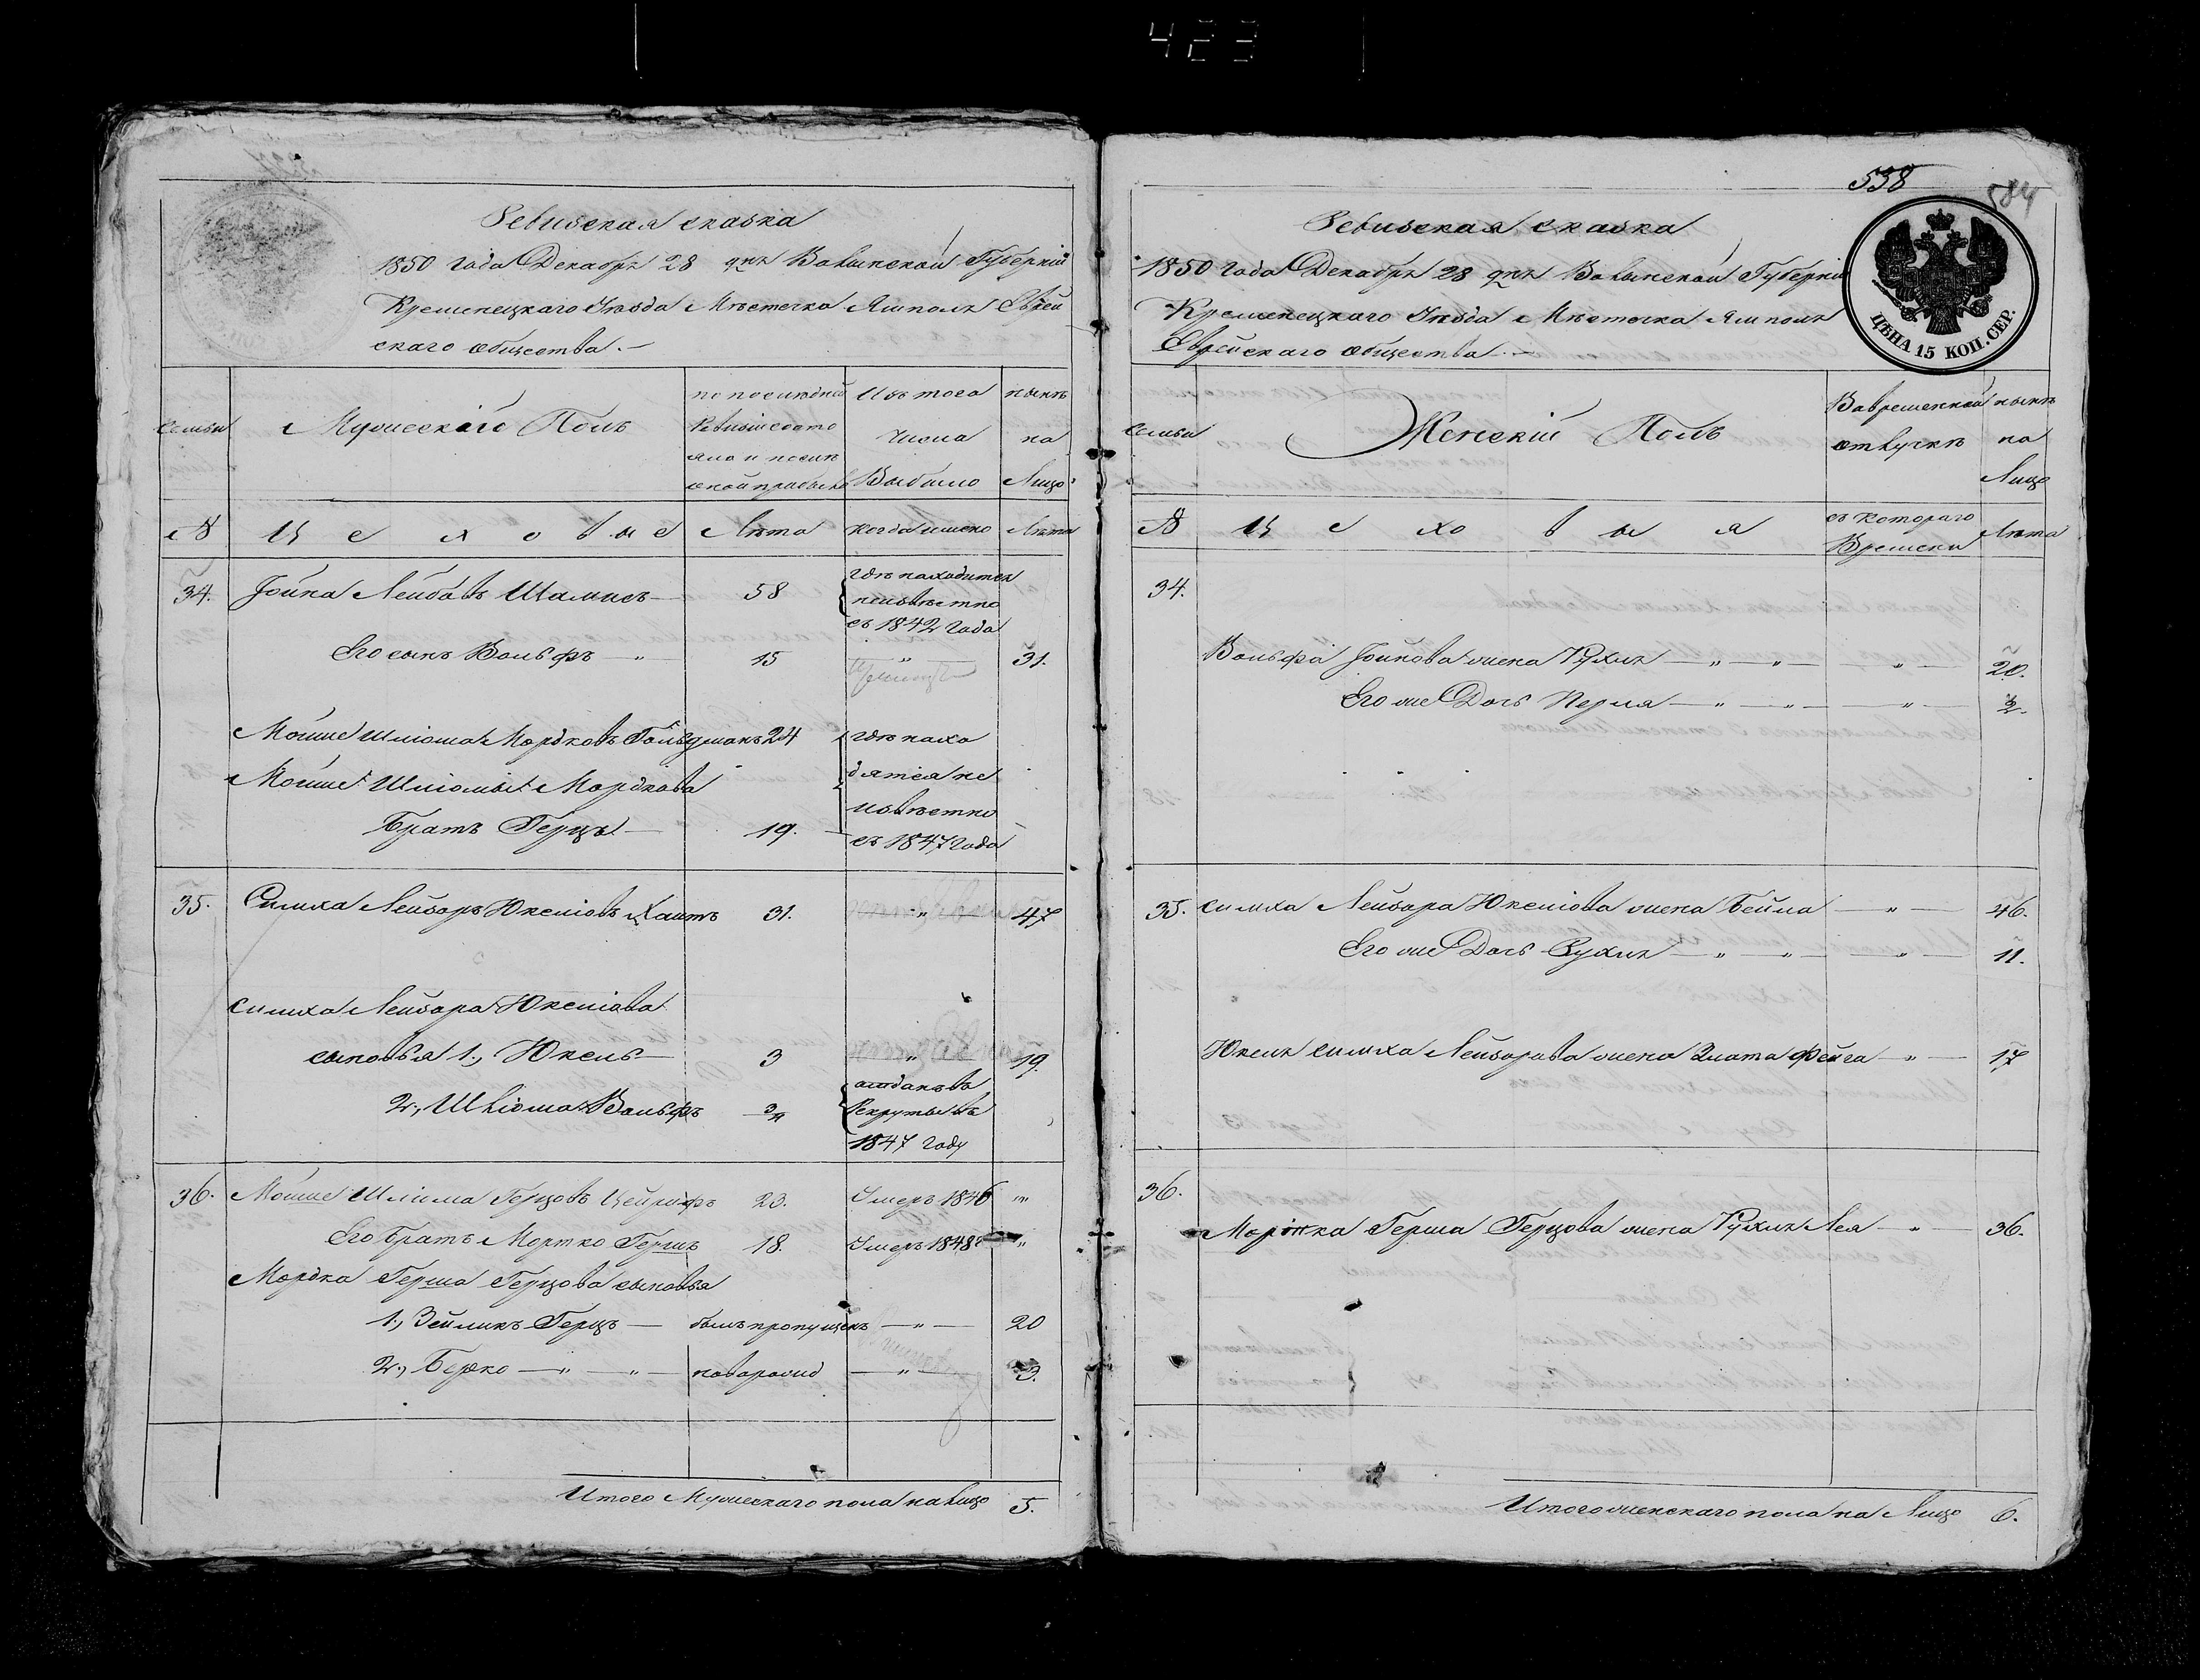 423
Ревизская сказка
1850 года Декабря 28 дня Волынской Губерніи
Кременецкаго Уезда Местечка Ямполя Еврей
скаго общества. —
семьи
Мужескаго Полъ
по последней
Ревизіи состо
яло и после
оной прибыло
Изъ того
числа
Выбыло
ныне
на
Лицо
№
Цеховые
Лета
когда имено
Лета
34.
Іойна Лейбовъ Шамисъ — 58
где находится
неизвестно
съ 1842 года
Его сынъ Вольфъ — " 15 " 31.
Мошко Шліома Мордковъ Гольдманъ 24
где нахо
Мошко Шліомы Мордкова
дятся не
известно
Братъ Герцъ — 19.
съ 1847 года
35. Симха Лейзоръ Юкеліовъ Хаитъ 31. " 47
Симха Лейзора Юкеліова
сыновья 1., Юкель — 3 " 19.
2., Шліома Вольфъ
отданъ въ
Рекруты въ
1847 году
36. Мошко Шліома Герцовъ 23. Умеръ 1846 "
Его братъ Мортко Гершъ 18. Умеръ 1848 "
Мордка Герша Герцова сыновья
1., Зейликъ Герцъ — былъ пропущенъ — " — 20
2., Берко — " — " — новорожд — " — 3.
Итого Мужескаго пола на лицо 5.
538
584
Ревизская сказка
1850 года Декабря 28 дня Волынской Губерніи
Кременецкаго Уезда Местечка Ямполя
Еврейскаго общества. —
ЦѢНА 15 КОП. СЕР.
семьи
Женскій Полъ
Вовременной
отлучке
ныне
на
Лицо
№
Цеховыя
съ котораго
Времени
Лета
34.
Вольфа Іойнова жена Рухля — " — " — " — 20.
Его же Дочь Перля — " — " — " —
35. Симха Лейзора Юкеліова жена Бейла — " — 46.
Его же Дочь Рухля — " — " — " — 11.
Юкеля Симха Лейзорова жена Злата Фейга — " — 17
36.
Мортка Герша Герцова жена Рухля Лея — " — 36.
Итого женскаго пола на Лицо 6.